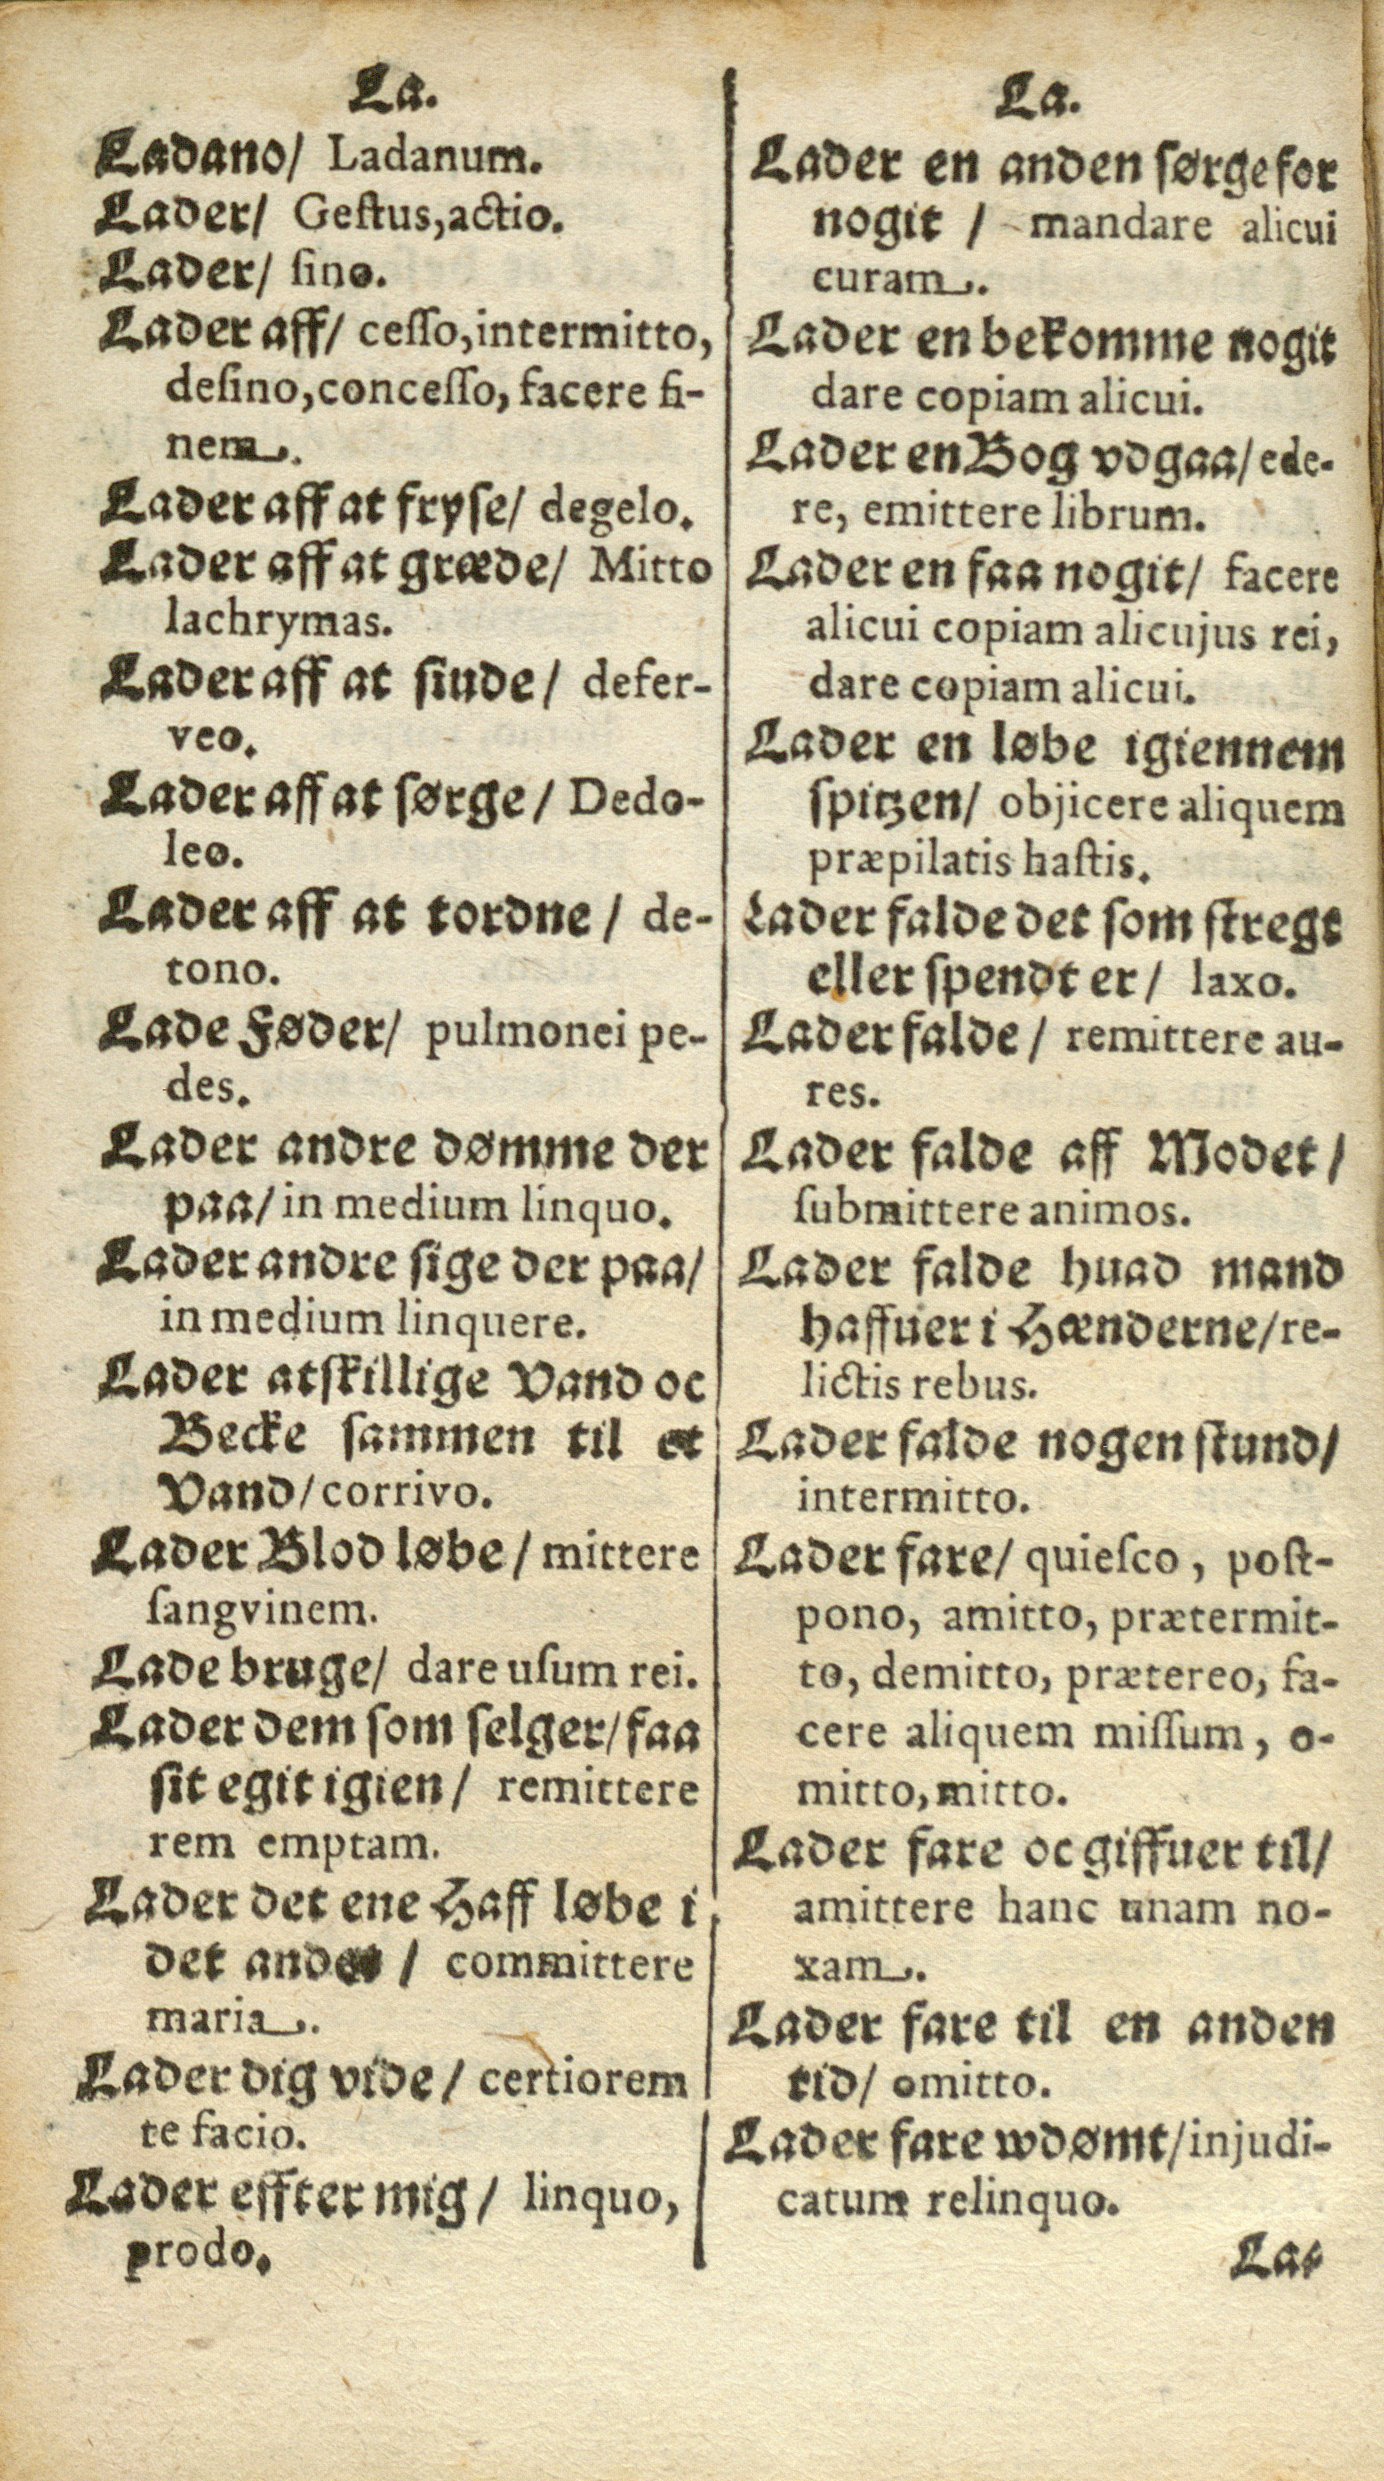 La.
Ladano/ Ladanum.
Lader/ Geſtus,actio.
Lader/ ſino.
Lader aff/ ceſſo,intermitto,
deſino,conceſſo, facere fi-
nem.
Lader aff at fryſe/ degelo.
Lader aff at græde/ Mitto
lachrymas.
Lader aff at ſiude/ defer-
veo.
Lader aff at ſørge/ Dedo-
leo.
Lader aff at tordne/ de-
tono.
Lade Føder/ pulmonei pe-
des.
Lader andre dømme der
paa/ in medium linquo.
Lader andre ſige der paa/
in medium linquere.
Lader atſkillige Vand oc
Becke ſammen til et
Vand/ corrivo.
Lader Blod løbe/ mittere
ſangvinem.
Lade bruge/ dare uſum rei.
Lader dem ſom ſelger/ faa
ſit egit igien/ remittere
rem emptam.
Lader det ene Haff løbe i
det andet/ committere
maria.
Lader dig vide/ certiorem
te facio.
Lader effter mig/ linquo,
prodo.
La.
Lader en anden ſørge for
nogit/ mandare alicui
curam.
Lader en bekomme nogit
dare copiam alicui.
Lader en Bog vdgaa/ ede-
re, emittere librum.
Lader en faa nogit/ facere
alicui copiam alicujus rei,
dare copiam alicui.
Lader en løbe igiennem
ſpitzen/ objicere aliquem
præpilatis haſtis.
Lader falde det ſom ſtregt
eller ſpendt er/ laxo.
Lader falde/ remittere au-
res.
Lader falde aff Modet/
ſubmittere animos.
Lader falde huad mand
haffuer i Hænderne/ re-
lictis rebus.
Lader falde nogen ſtund/
intermitto.
Lader fare/ quieſco, poſt-
pono, amitto, prætermit-
to, demitto, prætereo, fa-
cere aliquem miſſum, o-
mitto, mitto.
Lader fare oc giffuer til/
amittere hanc unam no-
xam.
Lader fare til en anden
tid/ omitto.
Lader fare wdømt/ injudi-
catum relinquo.
La-